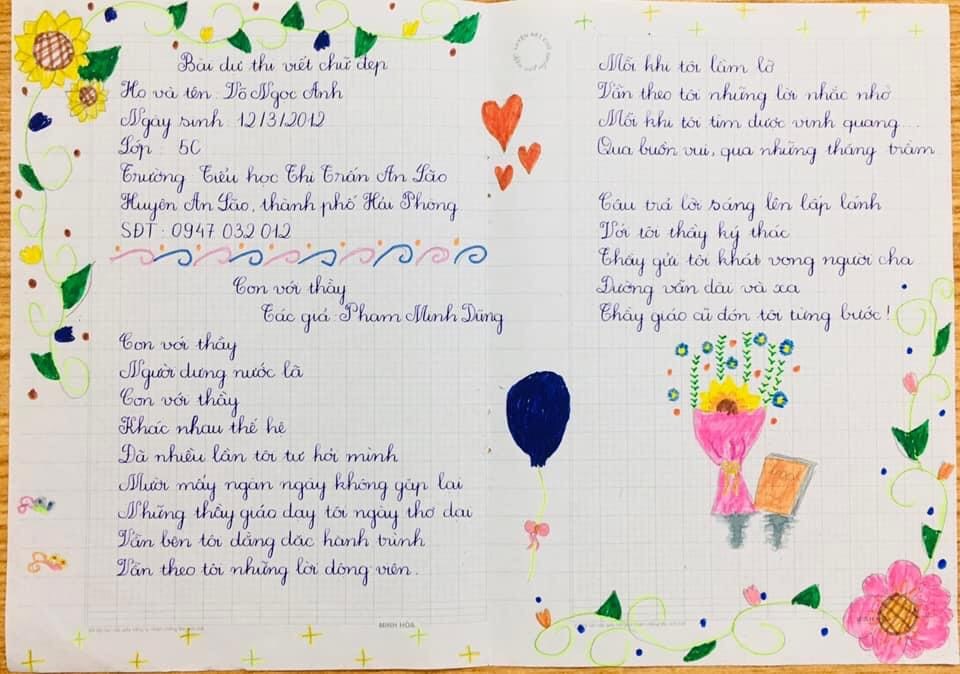 Bài dự thi viết chữ đẹp
Họ và tên : Võ Ngọc Anh
Ngày sinh : 12/3/2012
Lớp : 5C
Trường Tiểu học Thị Trấn An Lão
Huyện An Lão, thành phố Hải Phòng
SĐT : 0947 032 012
Con với thầy
Tác giả : Phạm Minh Dũng
Con với thầy
Người dưng nước lã
Con với thầy
Khác nhau thế hệ
Đã nhiều lần tôi tự hỏi mình
Mười mấy ngàn ngày không gặp lại
Những thầy giáo dạy tôi ngày thơ dại
Vẫn bên tôi dằng dặc hành trình
Vẫn theo tôi những lời động viên.
MINH HÒA
Mỗi khi tôi lầm lỡ
Vẫn theo tôi những lời nhắc nhở
Mỗi khi tôi tìm được vinh quang....
Qua buồn vui, qua những thăng trầm
Câu trả lời sáng lên lấp lánh
Với tôi thầy ký thác
Thầy gửi tôi khát vọng người cha
Đường vẫn dài và xa
Thầy giáo cũ đón tôi từng bước !